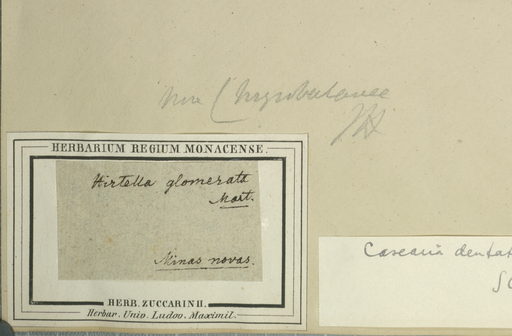 HERBARIUM REGIUM MONACENSE.
Hirtella glomerata
Mart.
Minas novas.
HERB. ZUCCARINII.
Herbar. Univ. Ludov. Maximil.
Casearia dentat